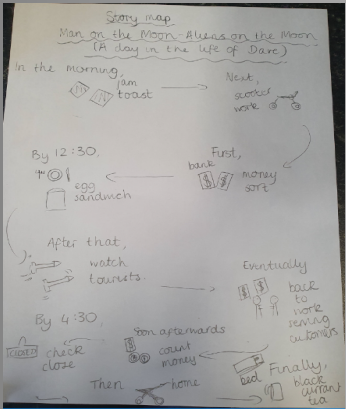 Story map
Man on the Moon - Aliens on the Moon
(A day in the life of Dave)
In the morning,
jam
toast
Next,
scooter
work
First,
bank
$ $
money
sort
By 12:30,
egg
sandwich
After that,
watch
tourists.
Eventually
$ $
back
to
work
serving
customers
Soon afterwards
$
count
money
By 4:30
CLOSED
check
close
Then
home
bed
Finally,
black
currant
tea